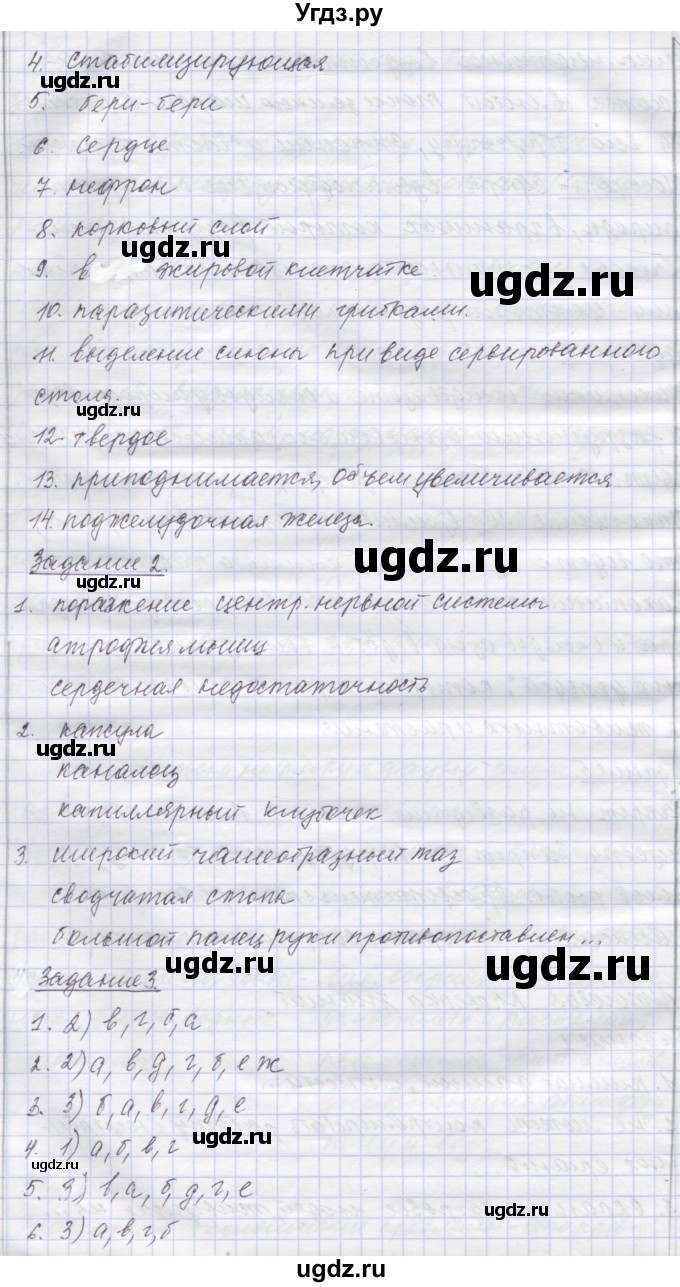 Угдз.ру
4. стабилизирующая
ugdz.ru
5. бери-бери
6. сердце
ugdz.ru
7. нефрон
8. корковый слой
ugdz.ru
9. в жировой клетчатке
ugdz.ru
10. паразитическими грибками.
11. выделение слюны при виде сервированного
стола.
ugdz.ru
12. твердое
13. приподнимается, объем увеличивается
14. поджелудочная железа.
ugdz.ru
Задание 2.
ugdz.ru
1. поражение центр. нервной системы
атрофия мышц
сердечная недостаточность
2. капсула
ugdz.ru
каналец
капиллярный клубочек
3. широкий чашеобразный таз
сводчатая стопа
большой палец руки противопоставлен...
ugdz.ru
ugdz.ru
Задание 3.
1. 2) в, г, б, а
2. 2) а, в, д, г, б, е ж
3. 3) б, а, в, г, д, е
4. 1) а, б, в, г
ugdz.ru
ugdz.ru
5. 3) в, а, б, д, г, е
6. 3) а, в, г, б
ugdz.ru
ugdz.ru